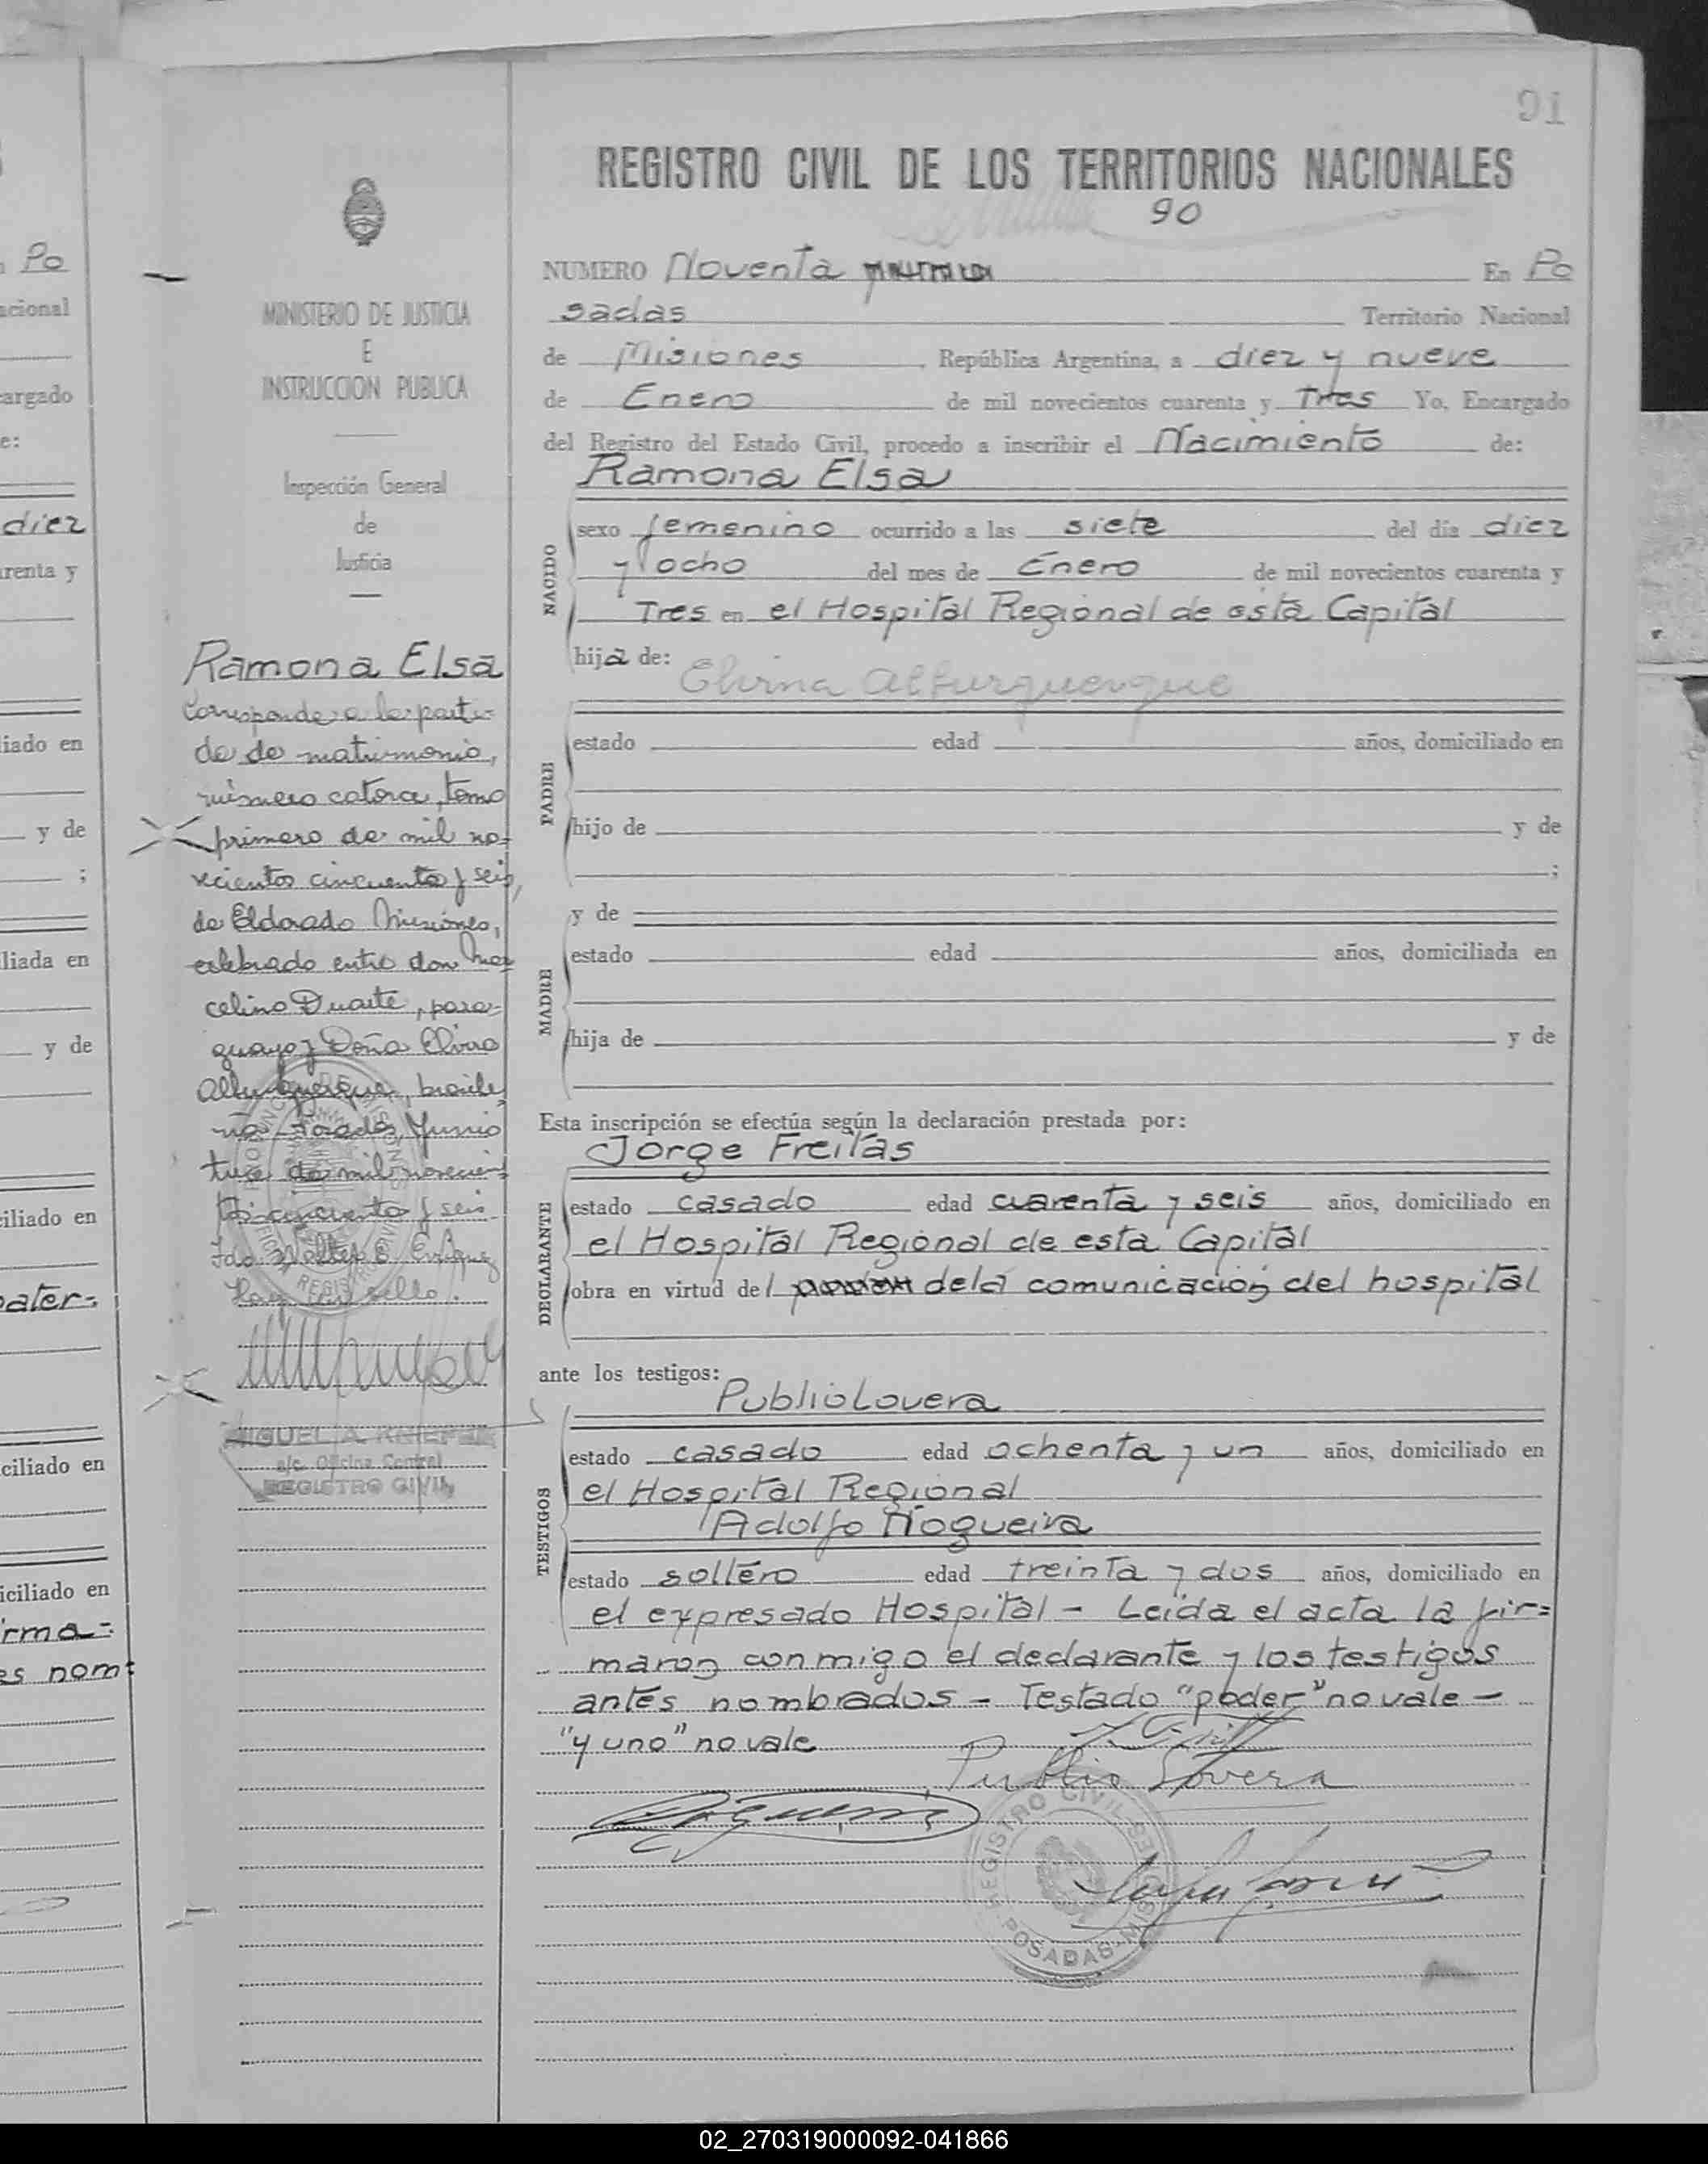 91
REGISTRO CIVIL DE LOS TERRITORIOS NACIONALES
90
NUMERO Noventa En Po
sadas Territorio Nacional
de Misiones República Argentina, a diez y nueve
de Enero de mil novecientos cuarenta y Tres Yo, Encargado
del Registro del Estado Civil, procedo a inscribir el Nacimiento de:
Ramona Elsa
NACIDO
sexo femenino ocurrido a las siete del día diez
y ocho del mes de Enero de mil novecientos cuarenta y
Tres en el Hospital Regional de esta Capital
hija de:
Elvira Alburquerque
PADRE
estado edad años, domiciliado en
hijo de y de
;
y de
MADRE
estado edad años, domiciliada en
hija de y de
Esta inscripción se efectúa según la declaración prestada por:
Jorge Freitas
DECLARANTE
estado casado edad cuarenta y seis años, domiciliado en
el Hospital Regional de esta Capital
obra en virtud del poder de la comunicación del hospital
ante los testigos:
Publio Lovera
TESTIGOS
estado casado edad ochenta y un años, domiciliado en
el Hospital Regional
Adolfo Nogueira
estado soltero edad treinta y dos años, domiciliado en
el expresado Hospital - Leida el acta la fir=
maron conmigo el declarante y los testigos
antes nombrados - Testado "poder" no vale -
"y uno" no vale
Publio Lovera
REGISTRO CIVIL
POSADAS-MISIONES
MINISTERIO DE JUSTICIA
E
INSTRUCCION PUBLICA
Inspección General
de
Justicia
Ramona Elsa
Corresponde a la parti-
da de matrimonio,
número catorce, tomo
primero de mil no-
vecientos cincuenta y seis,
de Eldorado Misiones,
celebrado entre don Mar
celino Duarte, para-
guayo y Doña Elvira
Alburquerque, brasile
ña - Posadas, Junio
trece de mil novecien
tos cincuenta y seis
Fdo Walter E. Enriquez
Hay un sello.
MIGUEL A. KNIEPER
a/c. Oficina Central
REGISTRO CIVIL
Po
acional
cargado
e:
diez
arenta y
liado en
y de
;
liada en
y de
ciliado en
pater-
ciliado en
iciliado en
irma-
es nom
02_270319000092-041866